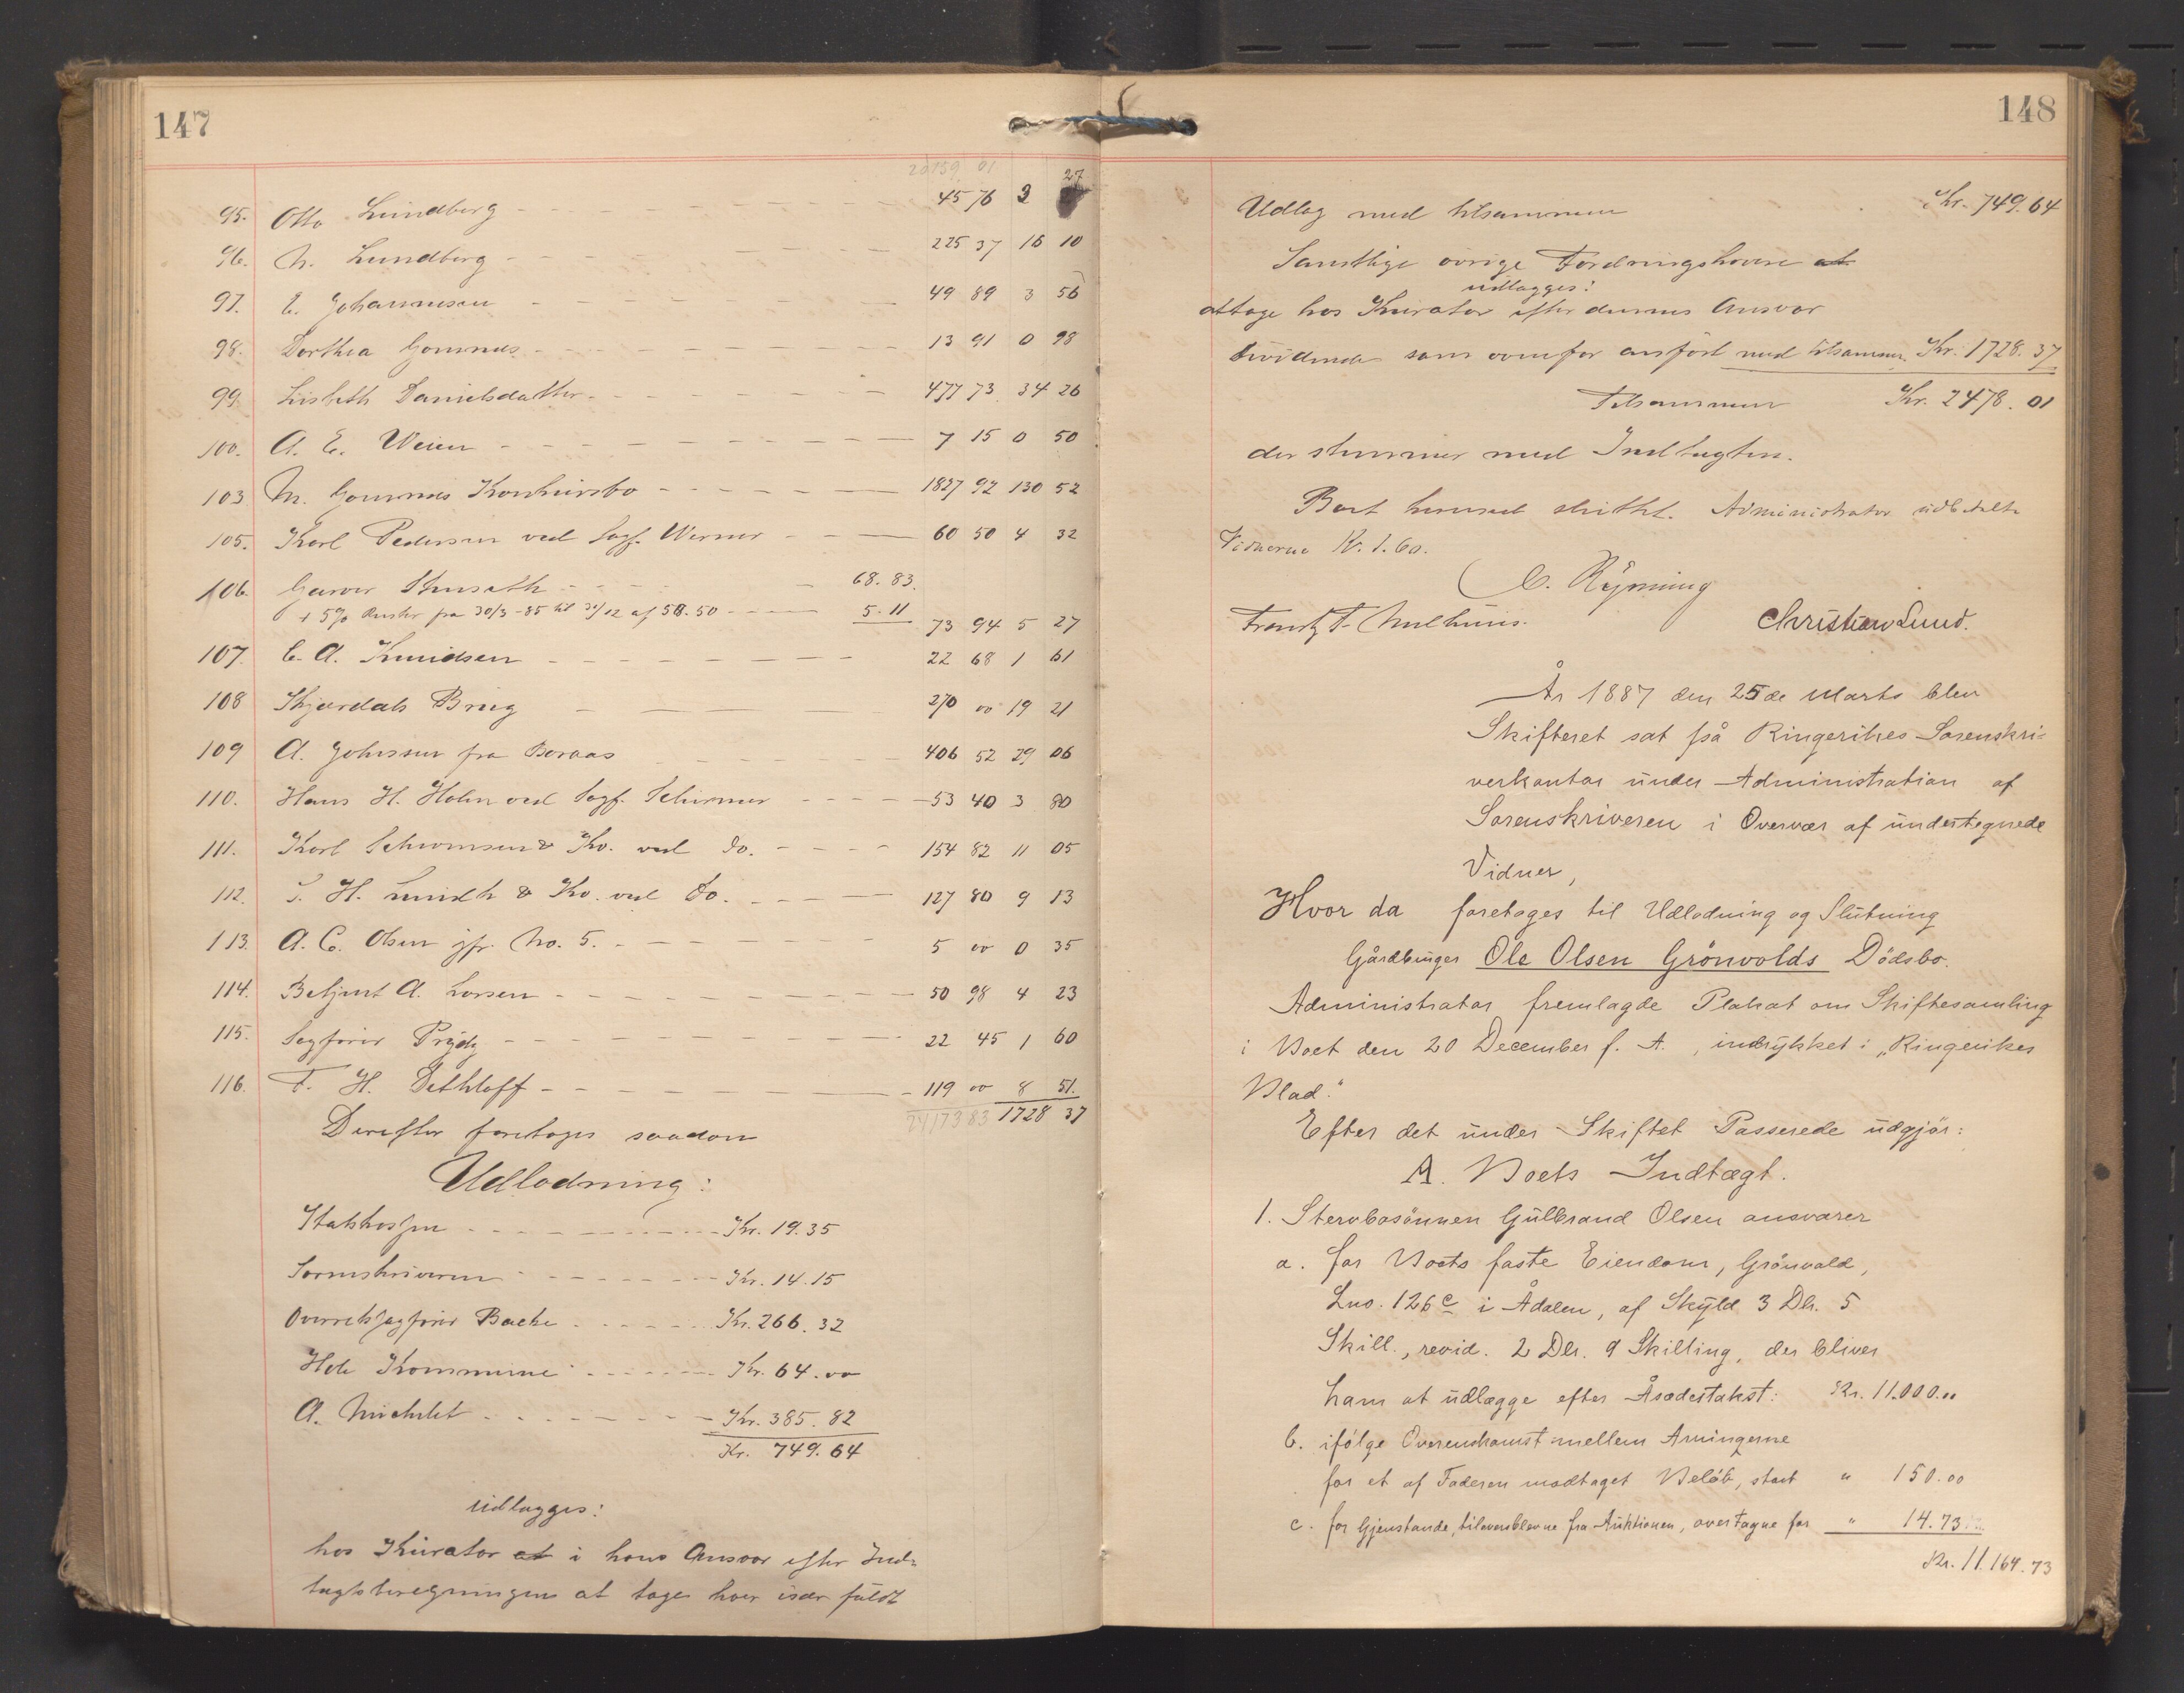 147
20159 01
95. Otto Lundberg - - - 45 76 3 27
96. N. Lundberg - - - 225 37 16 10
97. E. Johannesen - - - 49 89 3 56
98. Dorthea Gommes - - - 13 91 0 98
99. Lisbeth Danielsdatter - - - 477 73 34 26
100. A. E. Weien - - - 7 15 0 50
103 M. Gommes Konkursbo - - - 1827 92 130 52
105. Karl Pedersen ved Sagf. Werner - - - 60 50 4 32
106. Garver Stenseth - - - 68. 83.
+ 5% Renter fra 30/3 -85 til 31/12 af 58. 50 - - - 5. 11 73 94 5 27
107. C. A. Knudsen - - - 22 68 1 61
108 Skjærdals Brug - - - 270 00 19 21
109 A. Johnsen fra Boraas - - - 406 52 29 06
110. Hans H. Holm ved Sagf. Schirmer - - - 53 40 3 80
111. Karl Schwensen & Ko. ved do. - - - 154 82 11 05
112. T. H. Lundh & Ko. ved do. - - - 127 80 9 13
113. A. C. Olsen jfr. No. 5. - - - 5 00 0 35
114. Betjent A. Larsen - - - 50 98 4 23
115. Sagfører Prydz - - - 22 45 1 60
116. T. H. Dethloff - - - 119 00 8 51.
24173 83 1728 37
Derefter foretoges saadan
Udlodning:
Statskassen - - - Kr. 19. 35
Sorenskriveren - - - Kr. 14. 15
Overretssagfører Bache - - - Kr. 266. 32
Hole Kommune - - - Kr. 64. 00
A. Michelet - - - Kr. 385. 82
Kr. 749. 64
udlægges:
hos Kurator at i hans Ansvar efter Ind=
tægtsberegningen at tage hver især fuldt
148
Udlæg med tilsammen Kr. 749. 64
Samtlige øvrige Fordringshavere at
udlægges:
at tage hos Kurator efter dennes Ansvar
Dividende som ovenfor anført med tilsammen Kr. 1728. 37
Tilsammen Kr. 2478. 01
der stemmer med Indtægten.
Boet hermed sluttet. Administrator udbetalte
Vidnerne Kr. 1. 60.
C. Rynning
Frantz F. Christian Lund.
År 1887 den 25de Marts blev
Skifteret sat på Ringerikes Sorenskri-
verkontor under Administration af
Sorenskriveren i Overvær af undertegnede
Vidner,
Hvor da foretoges til Udlodning og Slutning
Gårdbruger Ole Olsen Grönvolds Dödsbo.
Administrator fremlagde Plakat om Skiftesamling
i Boet den 20 December f. A., indrykket i „Ringerikes
Blad."
Efter det under Skiftet Passerede udgjör:
A. Boets Indtægt.
1. Stervbosönnen Gulbrand Olsen ansvarer
a. for Boets faste Eiendom, Grönvold,
Lno. 126c i Ådalen, af Skyld 3 Dlr. 5
Skill., revid. 2 Dlr. 9 Skilling, der bliver
ham at udlægge efter Åsædestakst: Kr. 11.000.00
b. ifölge Overenskomst mellem Arvingerne
for et af Faderen modtaget Belöb, stort " 150.00
c. for Gjenstande, tiloversblevne fra Auktionen, overtagne for " 14.73
Kr. 11.164.73